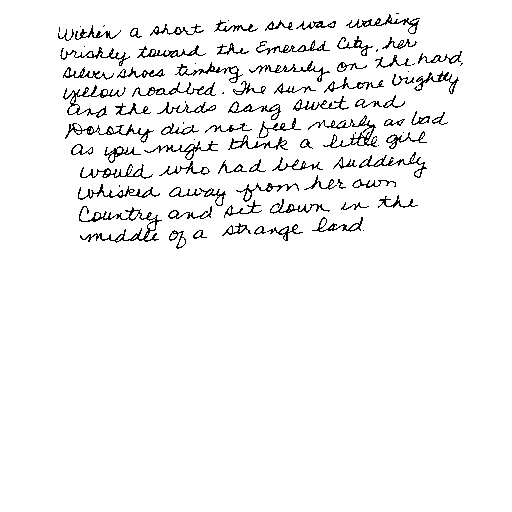 Within a short time she was walking
briskly toward the Emerald City, her
silver shoes tinking merrily on the hard,
yellow roadbed. The sun shone brightly
and the birds sang sweet and
Dorothy did not feel nearly as bad
as you might think a little girl
would who had been suddenly
whisked away from her own
country and set down in the
middle of a strange land.